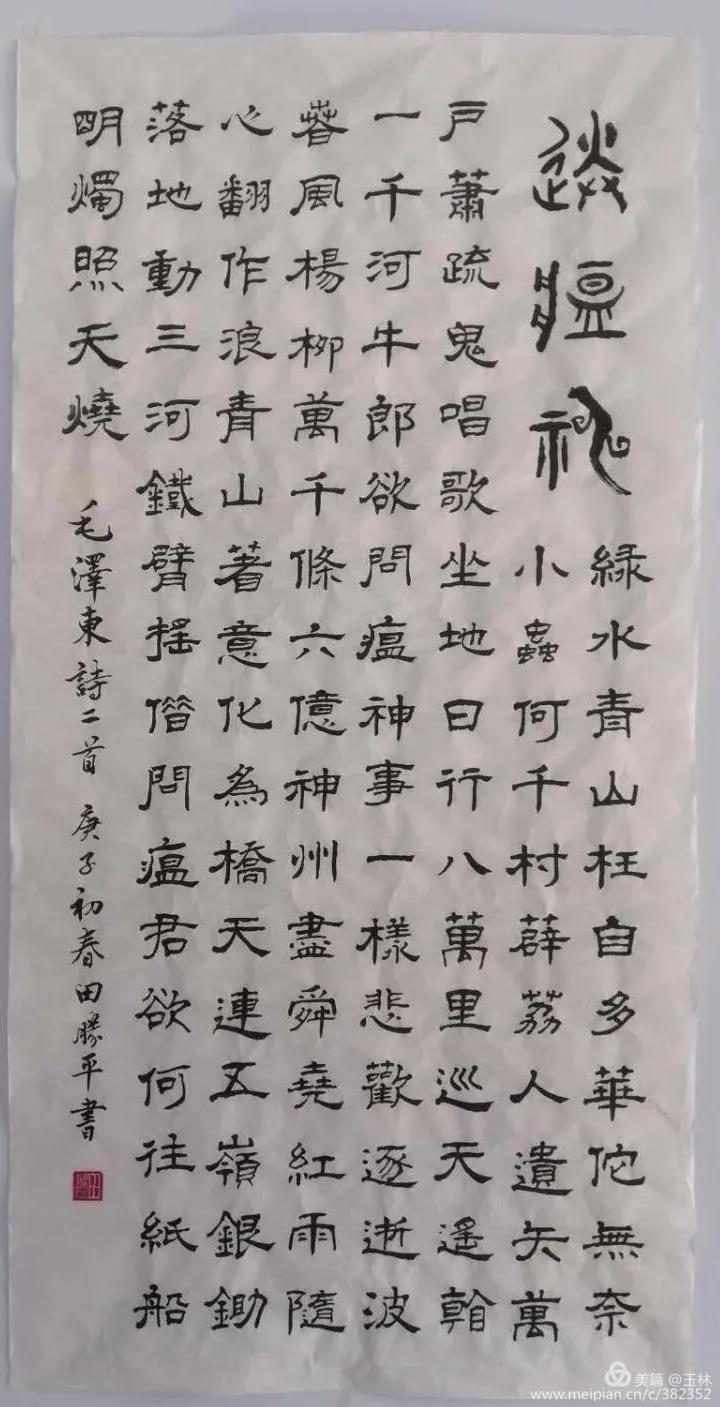 送瘟神
緑水青山枉自多華佗無奈
小蟲何千村薜荔人遺矢萬
戶蕭疏鬼唱歌坐地日行八萬里巡天遙看
一千河牛郎欲問瘟神事一樣悲歡逐逝波
春風楊柳萬千條六億神州盡舜堯紅雨隨
心翻作浪青山著意化為橋天連五嶺銀鋤
落地動三河鐵臂搖借問瘟君欲何往紙船
明燭照天燒
毛澤東詩二首 庚子初春田勝平書
美篇 @玉林
www.meipian.cn/c/382352